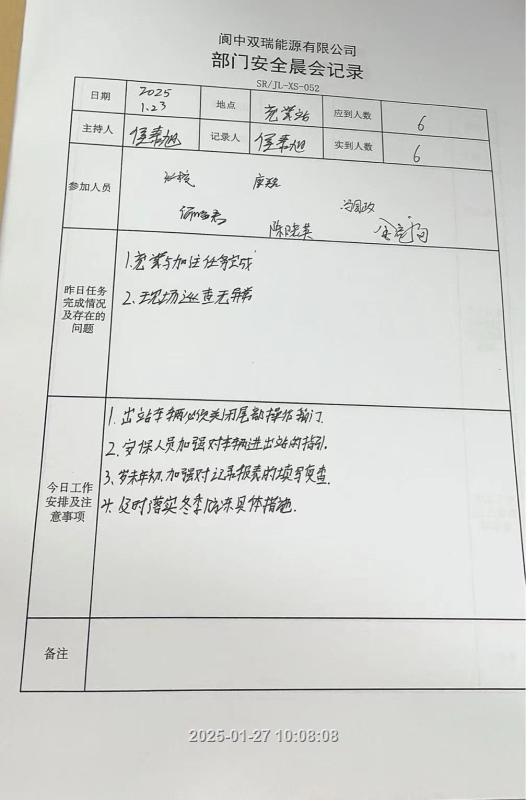 阆中双瑞能源有限公司
部门安全晨会记录
SR/JL-XS-052
日期 2025 1.23 地点 充装站 应到人数 6
主持人 记录人 实到人数 6
参加人员
陈晓英
昨日任务完成情况及存在的问题
1.充装与加注任务完成
2.现场巡查无异常
今日工作安排及注意事项
1.出站车辆必须关闭尾部操作箱门.
2.安保人员加强对车辆进出站的指引.
3.岁末年初,加强对记录报表的填写复查.
4.及时落实冬季防冻具体措施.
备注
2025-01-27 10:08:08